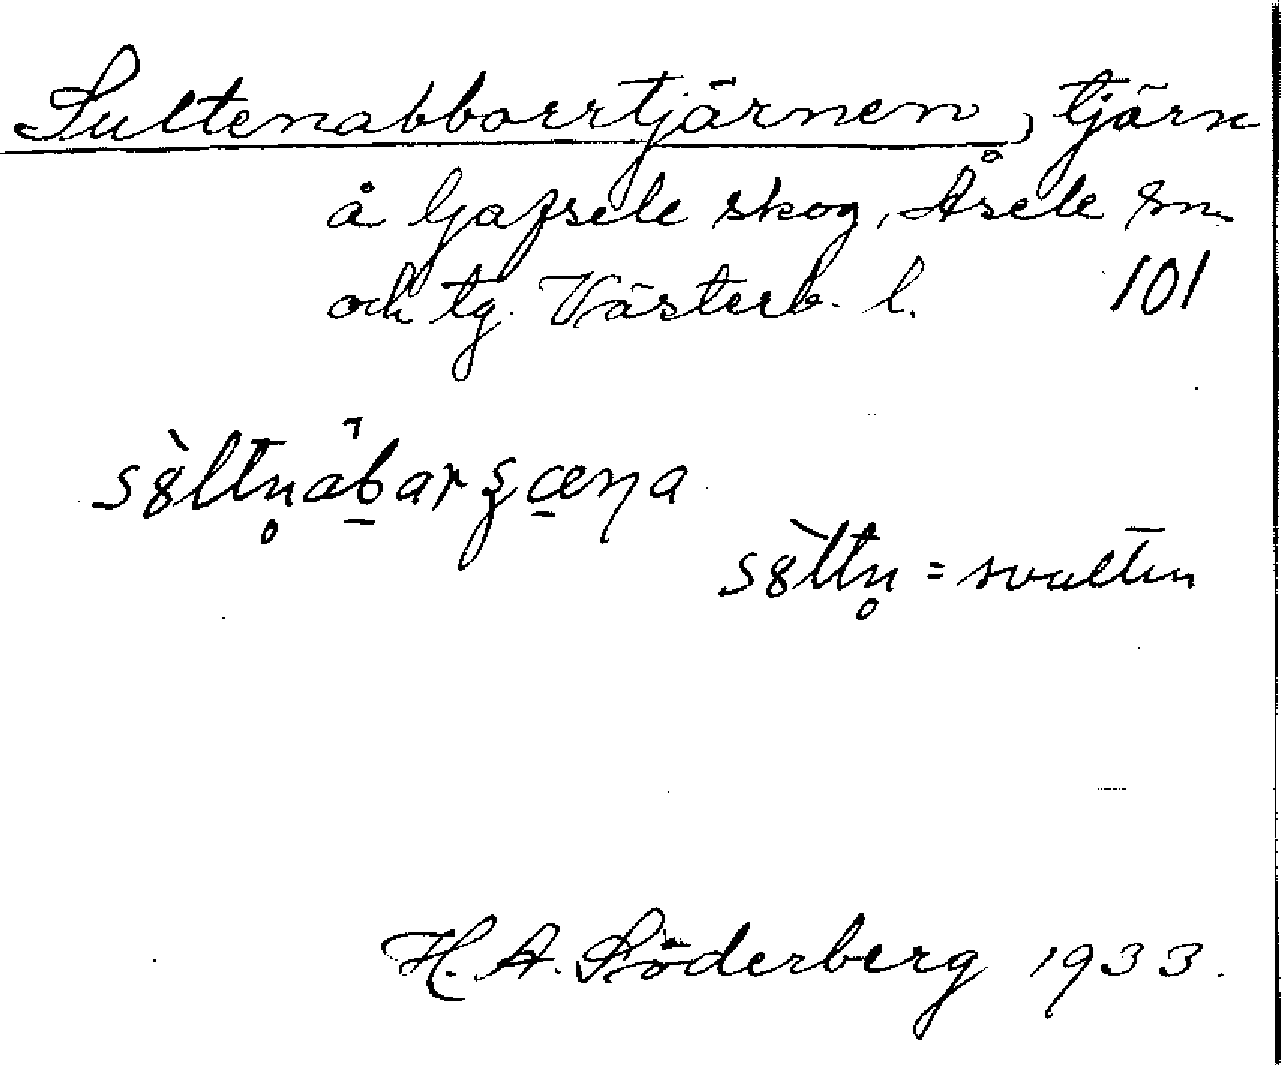 Sultenabborrtjärnen, tjärn
å Gafsele skog, Åsele sn
och tg. Västerb. l. 101
= svulten
H. A. Söderberg 1933.